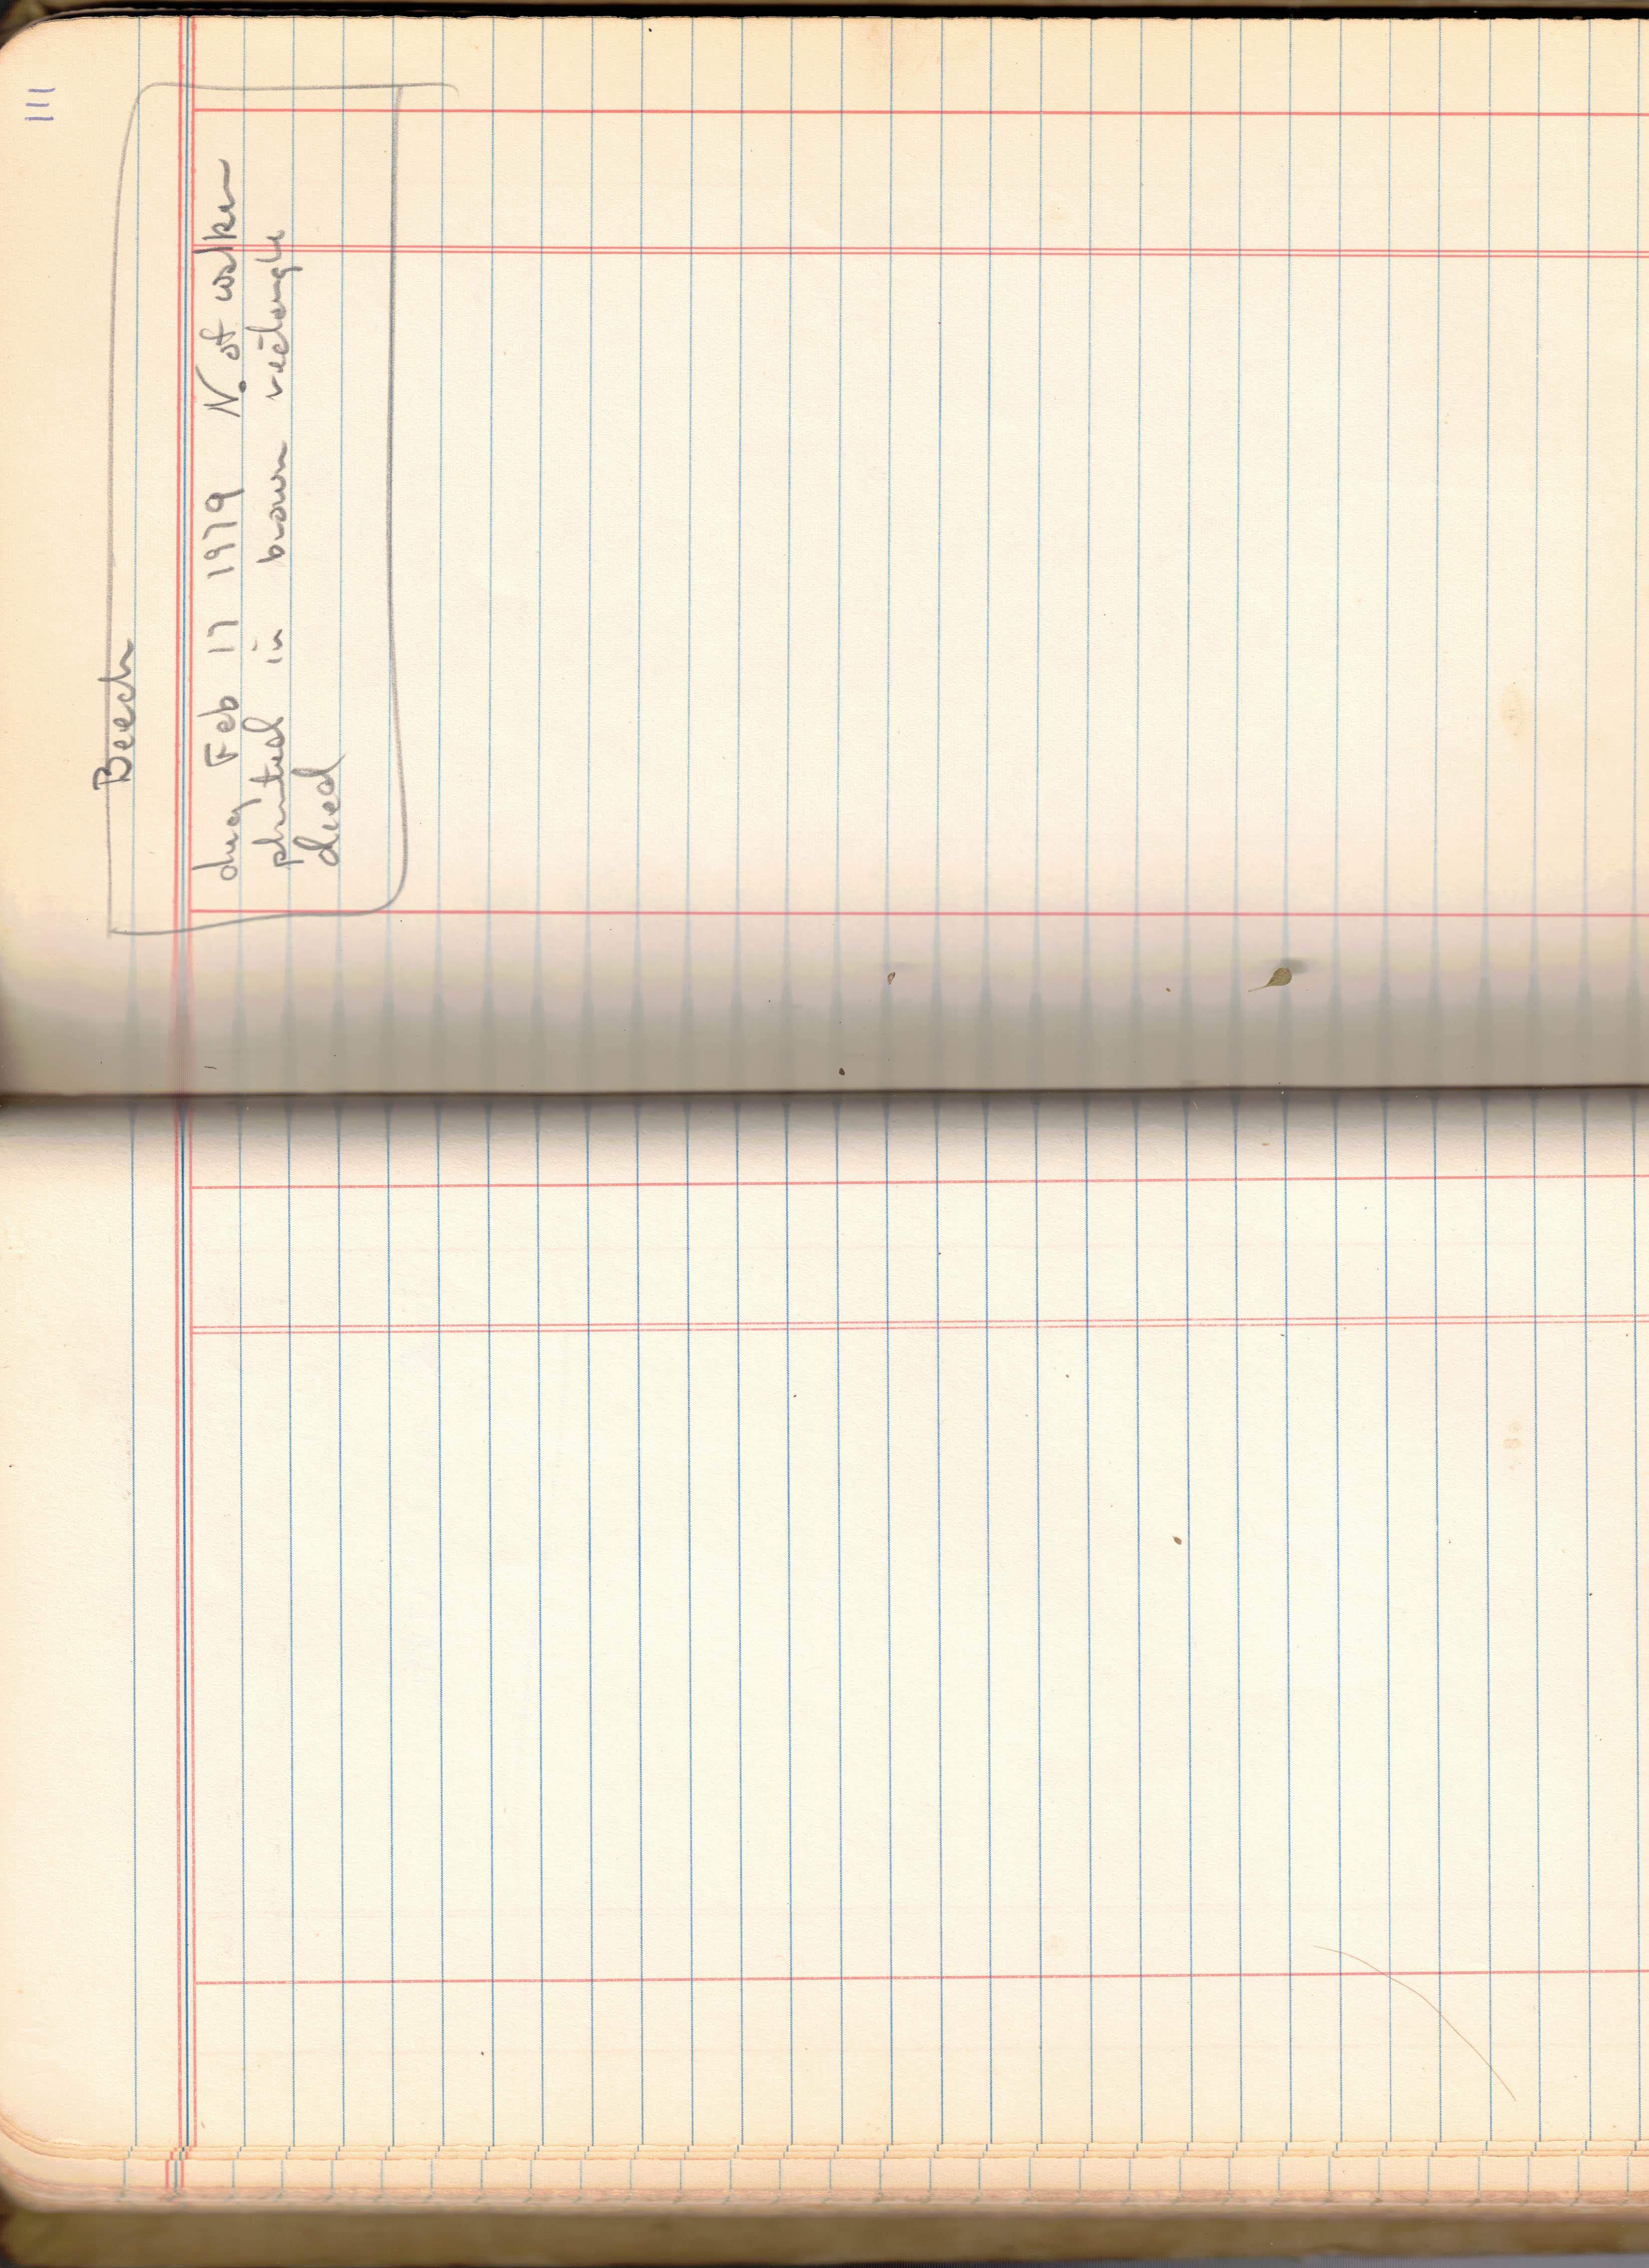 111
Beech
dug Feb 17 1979 N. of walker
planted in brown rectangle
died